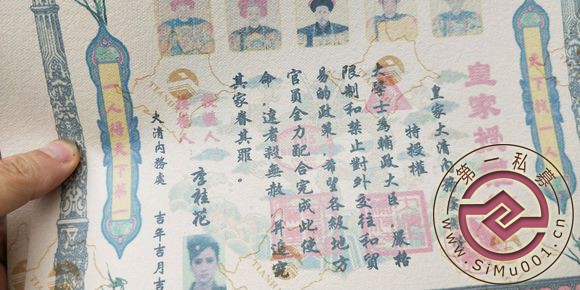 皇家授
皇家大清內
特授權
大學士為輔政大臣 嚴格
限制和禁止對外交往和貿
易的政策 希望各級地方
官員全力配合完成此使
命,違者殺無赦 并追究
其家眷其罪。
李桂花
大清內務處 吉年吉月吉
天下找一人
一人得天下第一
TIANH
第一私募
www.SiMu001.cn